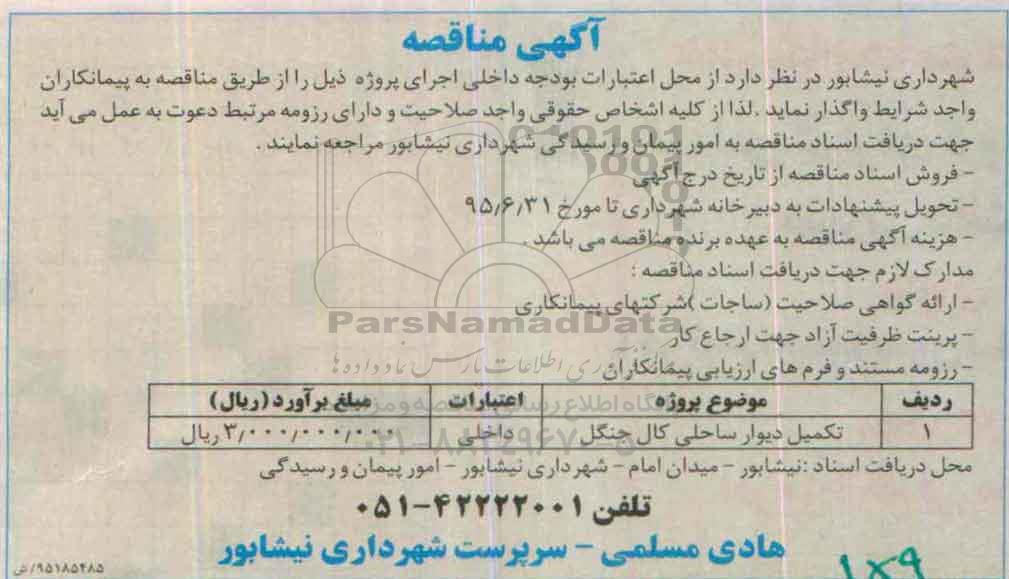 آگهی مناقصه
شهرداری نیشابور در نظر دارد از محل اعتبارات بودجه داخلی اجرای پروژه ذیل را از طریق مناقصه به پیمانکاران
واجد شرایط واگذار نماید .لذا از کلیه اشخاص حقوقی واجد صلاحیت و دارای رزومه مرتبط دعوت به عمل می آید
جهت دریافت اسناد مناقصه به امور پیمان و رسیدگی شهرداری نیشابور مراجعه نمایند .
- فروش اسناد مناقصه از تاریخ درج آگهی
- تحویل پیشنهادات به دبیرخانه شهرداری تا مورخ ۹۵/۶/۳۱
- هزینه آگهی مناقصه به عهده برنده مناقصه می باشد .
مدارک لازم جهت دریافت اسناد مناقصه :
- ارائه گواهی صلاحیت (ساجات )شرکتهای پیمانکاری
ParsNamadData
- پرینت ظرفیت آزاد جهت ارجاع کار
- رزومه مستند و فرم های ارزیابی پیمانکاران
ردیف موضوع پروژه اعتبارات مبلغ برآورد (ریال)
۱ تکمیل دیوار ساحلی کال جنگل داخلی ۳/۰۰۰/۰۰۰/۰۰۰ ریال
محل دریافت اسناد :نیشابور - میدان امام - شهرداری نیشابور - امور پیمان و رسیدگی
تلفن ۴۲۲۲۲۰۰۱-۰۵۱
هادی مسلمی - سرپرست شهرداری نیشابور
۹۵۱۸۵۴۸۵/ش